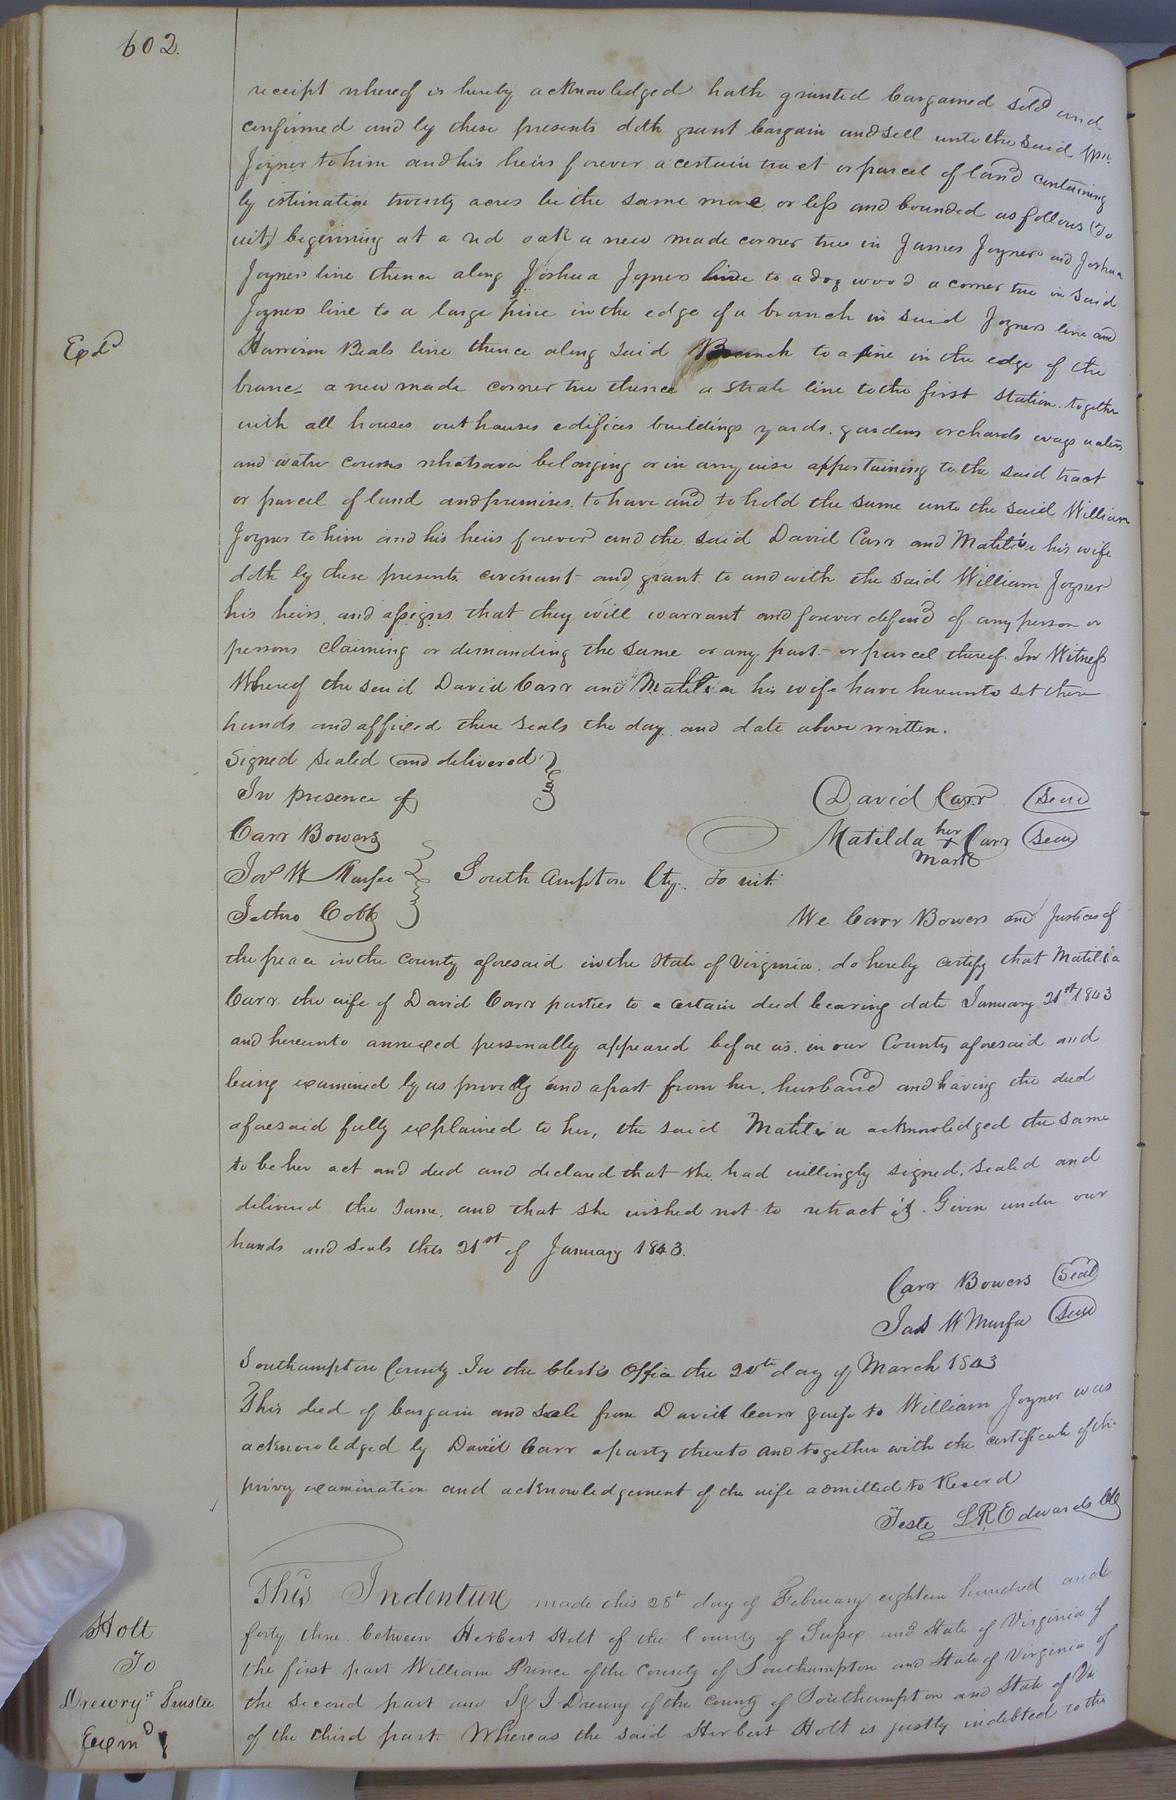 602.
receipt whereof is hereby acknowledged hath granted bargained sold and
confirmed and by these presents doth grant bargain and sell unto the said
Joyner to him and his heirs forever a certain tract or parcel of land containing
by estimation twenty acres be the same more or less and bounded as follows (To
wit) beginning at a red oak a new made corner tree in James Joyners and Joshua
Joyners line thence along Joshua Joyners line to a dog wood a corner tree in said
Joyners line to a large pine in the edge of a branch in said Joyners line and
Exd
Harrison Beals line thence along said Branch to a pine in the edge of the
branc a new made corner tree thence a strate line to the first station. together
with all houses outhouses edifices buildings yards. gardens orchards ways waters
and water courses whatsoever belonging or in any wise appertaining to the said tract
or parcel of land and premises. to have and to hold the same unto the said William
Joyner to him and his heirs forever and the said David Carr and Matilda his wife
doth by these presents covenant and grant to and with the said William Joyner
his heirs and assigns that they will warrant and forever defend of any person or
persons claiming or demanding the same or any part or parcel thereof. In Witness
Whereof the said David Carr and Matilda his wife have hereunto set their
hands and affixed there seals the day and date above written.
Signed Sealed and delivered
In presence of
David Carr (Seal)
Carr Bowers
Matilda her + mark Carr (Seal)
W Murfee
South ampton Cty. To wit.
Jethro Cobb
We Carr Bowers and Justices of
the peace in the County aforesaid in the State of Virginia. do hereby certify that Matilda
Carr. the wife of David Carr parties to a certain deed bearing date January 21st 1843
and hereunto annexed personally appeared before us. in our County aforesaid and
being examined by us privily and apart from her. husband and having the deed
aforesaid fully explained to her, the said Matilda acknowledged the same
to be her act and deed and declared that she had willingly signed. sealed and
delivered the same. and that she wished not to retract it. Given under our
hands and seals this 21st of January 1843.
Carr Bowers (Seal)
Jas W Murfee (Seal)
Southampton County. In the Clerk's Office the 20th day of March 1843
This deed of bargain and sale from David Carr & wife to William Joyner was
acknowledged by David Carr a party thereto and together with the certificate of the
privy examination and acknowledgement of the wife admitted to Record
Teste L R Edwards Clk
This Indenture made this 28th day of February eighteen hundred and
forty three between Herbert Holt of the County of Sussex and State of Virginia of
the first part William Prince of the County of Southampton and State of Virginia of
the second part and J Drewry of the County of Southampton and State of Va
of the third part. Whereas the said Herbert Holt is justly indebted to the
Holt
To
Drewry's Trustee
Exemd